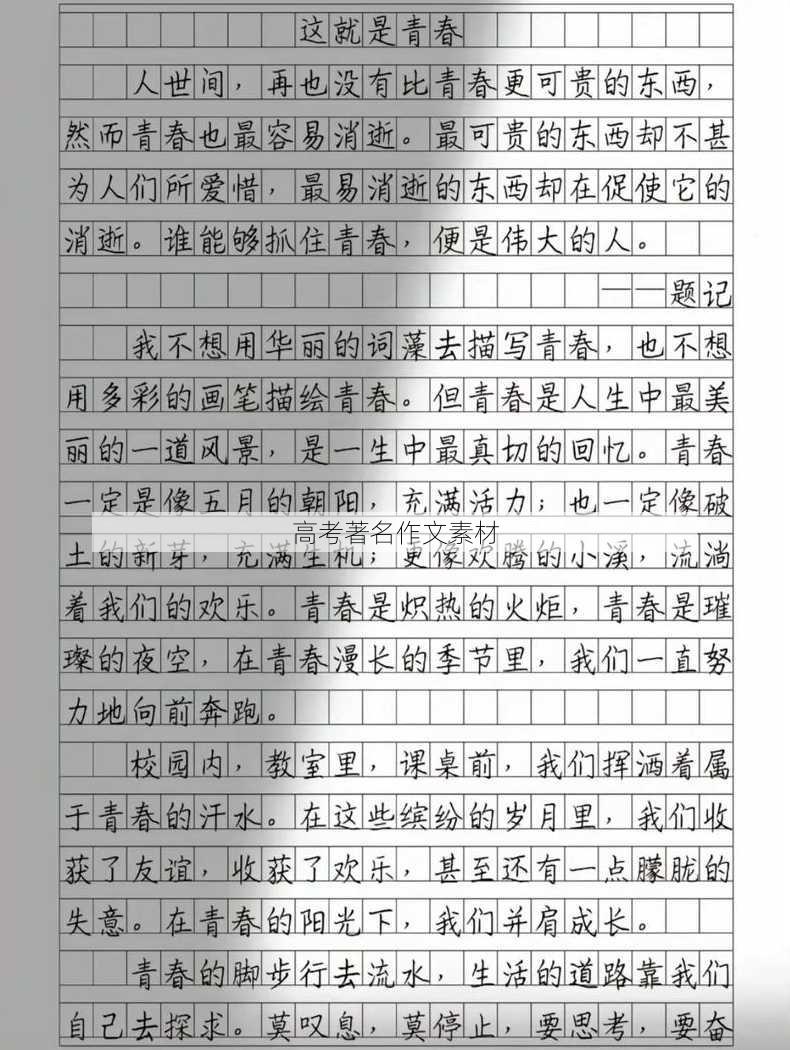 这就是青春
人世间，再也没有比青春更可贵的东西，
然而青春也最容易消逝。最可贵的东西却不甚
为人们所爱惜，最易消逝的东西却在促使它的
消逝。谁能够抓住青春，便是伟大的人。
——题记
我不想用华丽的词藻去描写青春，也不想
用多彩的画笔描绘青春。但青春是人生中最美
丽的一道风景，是一生中最真切的回忆。青春
一定是像五月的朝阳，充满活力；也一定像破
高考著名作文素材
土的新芽，充满生机；更像欢腾的小溪，流淌
着我们的欢乐。青春是炽热的火炬，青春是璀
璨的夜空，在青春漫长的季节里，我们一直努
力地向前奔跑。
校园内，教室里，课桌前，我们挥洒着属
于青春的汗水。在这些缤纷的岁月里，我们收
获了友谊，收获了欢乐，甚至还有一点朦胧的
失意。在青春的阳光下，我们并肩成长。
青春的脚步行去流水，生活的道路靠我们
自己去探求。莫叹息，莫停止，要思考，要奋